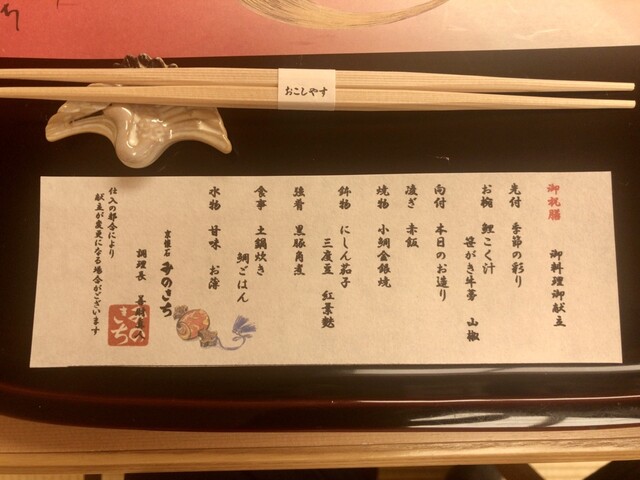 おこしやす
御祝膳　御料理御献立
先付　季節の彩り
お椀　鯉こく汁
笹がき牛蒡　山椒
向付　本日のお造り
凌ぎ　赤飯
焼物　小鯛金銀焼
鉢物　にしん茄子
三度豆　紅葉麩
強肴　黒豚角煮
食事　土鍋炊き
鯛ごはん
水物　甘味　お薄
みのきち
調理長
仕入の都合により
献立が変更になる場合がございます
みの
きち